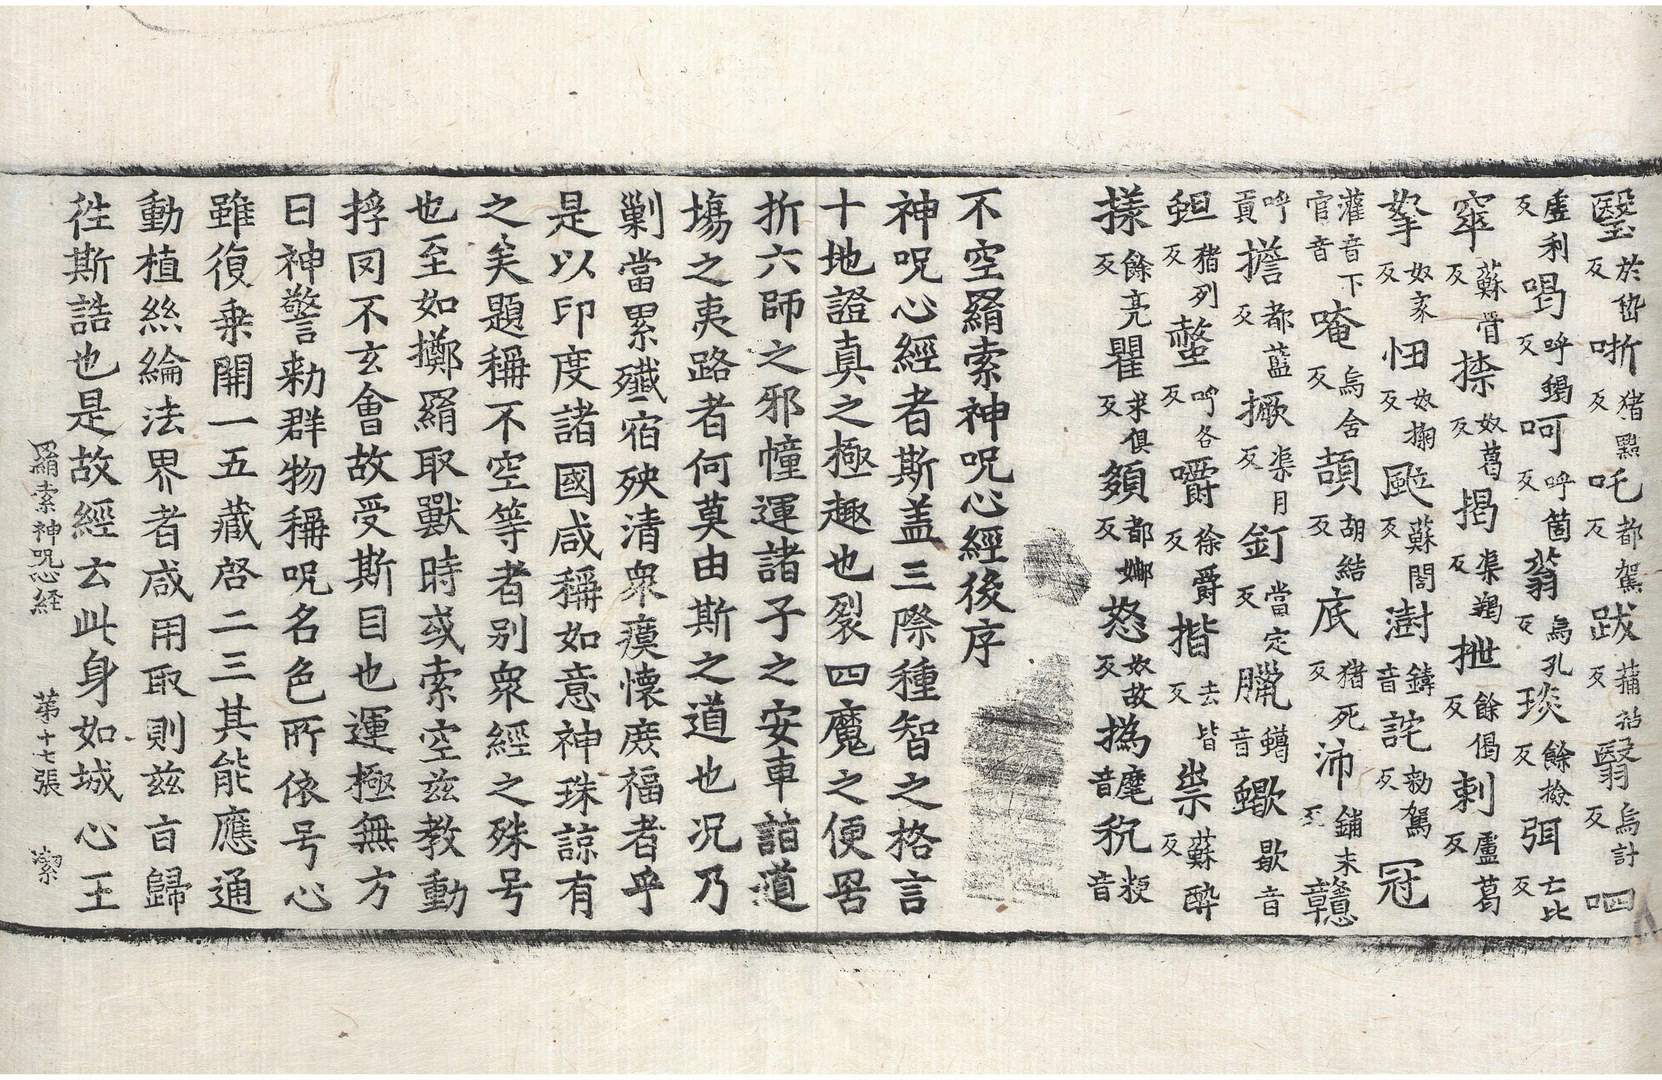 瑿於𡴭反哳猪黠反吒都駕反跋蒲活反翳烏計反呬
盧利反喝呼蝎反呵呼箇反蓊烏孔反琰餘撿反弭亡比反
窣蘇骨反捺奴葛反揭渠羯反抴餘偈反剌盧葛反
拏奴家反忸奴掬反颯蘇閤反澍鑄音詫勑駕反冠
灌音下官音唵烏舍反頡胡結反底猪死反沛鋪末反贛
呼貢擔都藍反撅渠月反釘當定反臘蠟音蠍歇音
蛆猪列反螫呼各反嚼徐爵反揩去皆反祟蘇醉反
𢭐餘亮反瞿求俱反𩒨都娜反怒奴故反撝麾音秔粳音
不空羂索神呪心經後序
神呪心經者斯盖三際種智之格言
十地證真之極趣也裂四魔之便罟
折六師之邪幢運諸子之安車詣道
塲之夷路者何莫由斯之道也况乃
剿當累殲宿殃清衆瘼懷庶福者乎
是以印度諸國咸稱如意神珠諒有
之矣題稱不空等者别衆經之殊号
也至如擲羂取獸時或索空兹教動
捊罔不玄會故受斯目也運極無方
曰神警勑群物稱呪名色所依号心
雖復乗開一五藏啓二三其能應通
動植絲綸法界者咸用取則兹㫖歸
徃斯誥也是故經云此身如城心王
羂索神呪心经　第十七張　潔